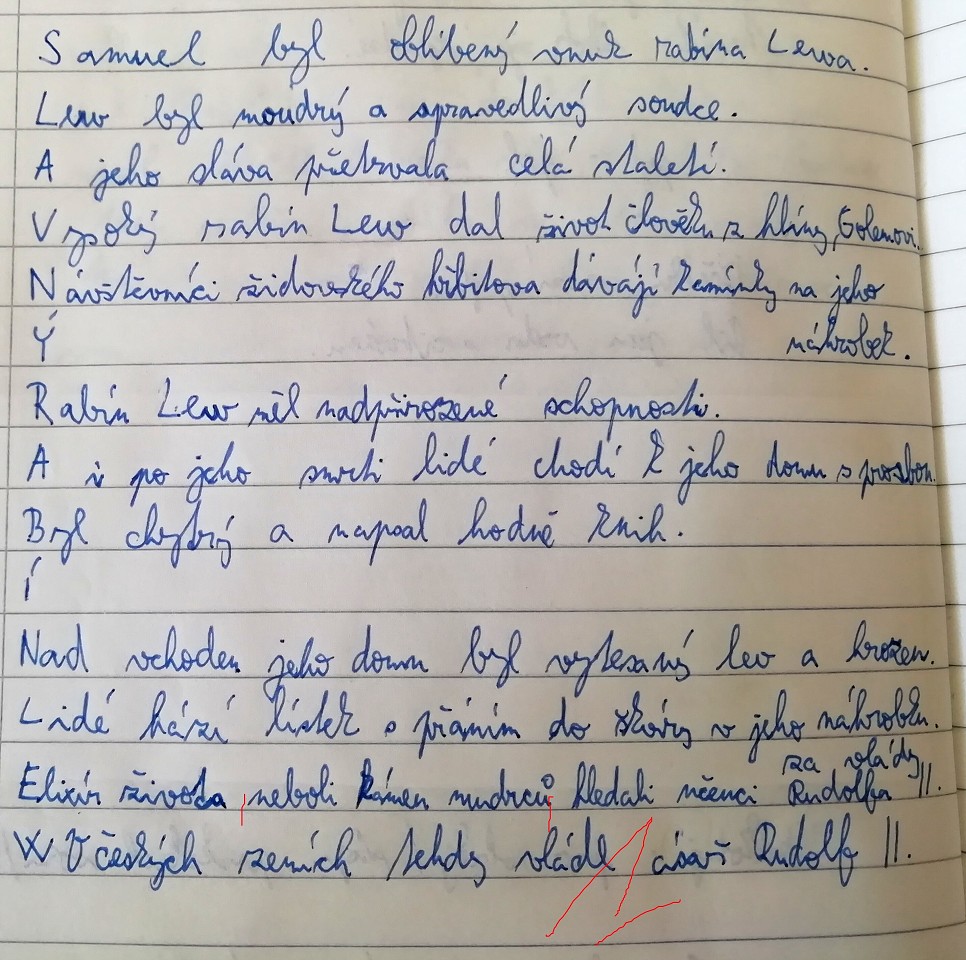 Samuel byl oblíbený vnuk rabína Lewa.
Lew byl moudrý a spravedlivý soudce.
A jeho sláva přetrvala celá staletí.
Vysoký rabín Lew dal život člověku z hlíny, Golemovi.
Návštěvníci židovského hřbitova dávájí kamínky na jeho
Ý náhrobek.
Rabín Lew měl nadpřirozené schopnosti.
A i po jeho smrti lidé chodí k jeho domu s prosbou.
Byl chytrý a napsal hodně knih.
Í
Nad vchodem jeho domu byl vytesaný lev a hrozen.
Lidé hází lístek s přáním do škóry v jeho náhrobku.
za vlády
Elixír života neboli kámen mudrců hledali učenci Rudolfa II.
W V českých zemích tehdy vládl císař Rudolf II.
1